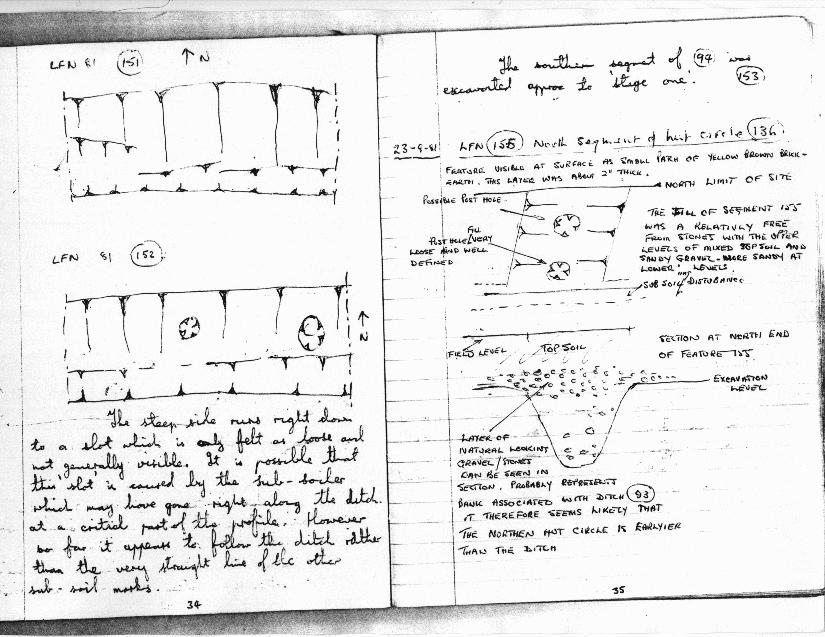 LFN 81 (151) ↑N
LFN 81 (152)
N
The steep side runs right down
to a slot which is only felt as loose and
not generally visible. It is possible that
this slot is caused by the sub-soiler
which may have gone right along the ditch
at a critical part of the profile. However
so far it appears to follow the ditch rather
than the very straight line of the other
sub-soil marks.
34
The southern segment of (94) was
(153)
excavated approx to 'stage one'.
23-9-81 LFN (155) North Segment of hut circle (136)
FEATURE VISIBLE AT SURFACE AS SMALL PATH OF YELLOW BROWN BRICK-
EARTH. THIS LAYER WAS ABOUT 2" THICK.
NORTH LIMIT OF SITE
POSSIBLE POST HOLE
FILL
POST HOLE/VERY
LOOSE AND WELL
DEFINED
THE FILL OF SEGMENT 155
WAS A RELATIVLY FREE
FROM STONES WITH THE UPPER
LEVELS OF MIXED TOP SOIL AND
SANDY GRAVEL - MORE SANDY AT
LOWER LEVELS.
SUB SOIL DISTURBANCE
FIELD LEVEL
TOP SOIL
SECTION AT NORTH END
OF FEATURE 155
EXCAVATION
LEVEL
LAYER OF
NATURAL LOOKING
GRAVEL/STONES
CAN BE SEEN IN
SECTION. PROBABLY REPRESENT
BANK ASSOCIATED WITH DITCH (93)
IT THEREFORE SEEMS LIKELY THAT
THE NORTHEN HUT CIRCLE IS EARLYIER
THAN THE DITCH
35